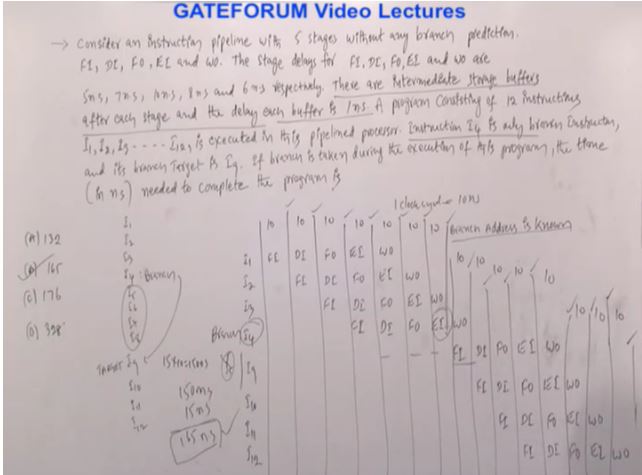 GATEFORUM Video Lectures
→ Consider an instruction pipeline with 5 stages without any branch prediction.
FI, DI, FO, EI and WO. The stage delays for FI, DI, FO, EI and WO are
5ns, 7ns, 10ns, 8ns and 6ns respectively. There are intermediate storage buffers
after each stage and the delay each buffer is 1ns. A program consisting of 12 instructions
I1, I2, I3 ---- I12, is executed in this pipelined processor. Instruction I4 is only branch Instruction,
and its branch Target is I9. If branch is taken during the execution of this program, the time
(in ns) needed to complete the program is
1 clock cycle - 10ns
Branch Address is known
10 10 10 10 10 10 10 10 10 10 10 10 10 10 10
(A) 132
(B) 165
(C) 176
(D) 328
I1
I2
I3
I4 : Branch
I5
I6
I7
I8
TARGET I9
I10
I11
I12
15×10=150ns
150ns
15ns
165ns
I1 FI DI FO EI WO
I2 FI DI FO EI WO
I3 FI DI FO EI WO
Branch I4 FI DI FO EI WO
I9 - - - FI DI FO EI WO
I10 FI DI FO EI WO
I11 FI DI FO EI WO
I12 FI DI FO EI WO